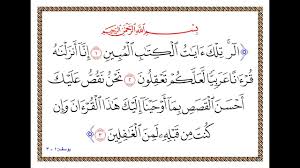 بِسْمِ ٱللَّهِ ٱلرَّحْمَٰنِ ٱلرَّحِيمِ
الٓر ۚ تِلْكَ ءَايَٰتُ ٱلْكِتَٰبِ ٱلْمُبِينِ ١ إِنَّآ أَنزَلْنَٰهُ
قُرْءَٰنًا عَرَبِيًّا لَّعَلَّكُمْ تَعْقِلُونَ ٢ نَحْنُ نَقُصُّ عَلَيْكَ
أَحْسَنَ ٱلْقَصَصِ بِمَآ أَوْحَيْنَآ إِلَيْكَ هَٰذَا ٱلْقُرْءَانَ وَإِن
كُنتَ مِن قَبْلِهِۦ لَمِنَ ٱلْغَٰفِلِينَ ٣
يوسف: ١ - ٣